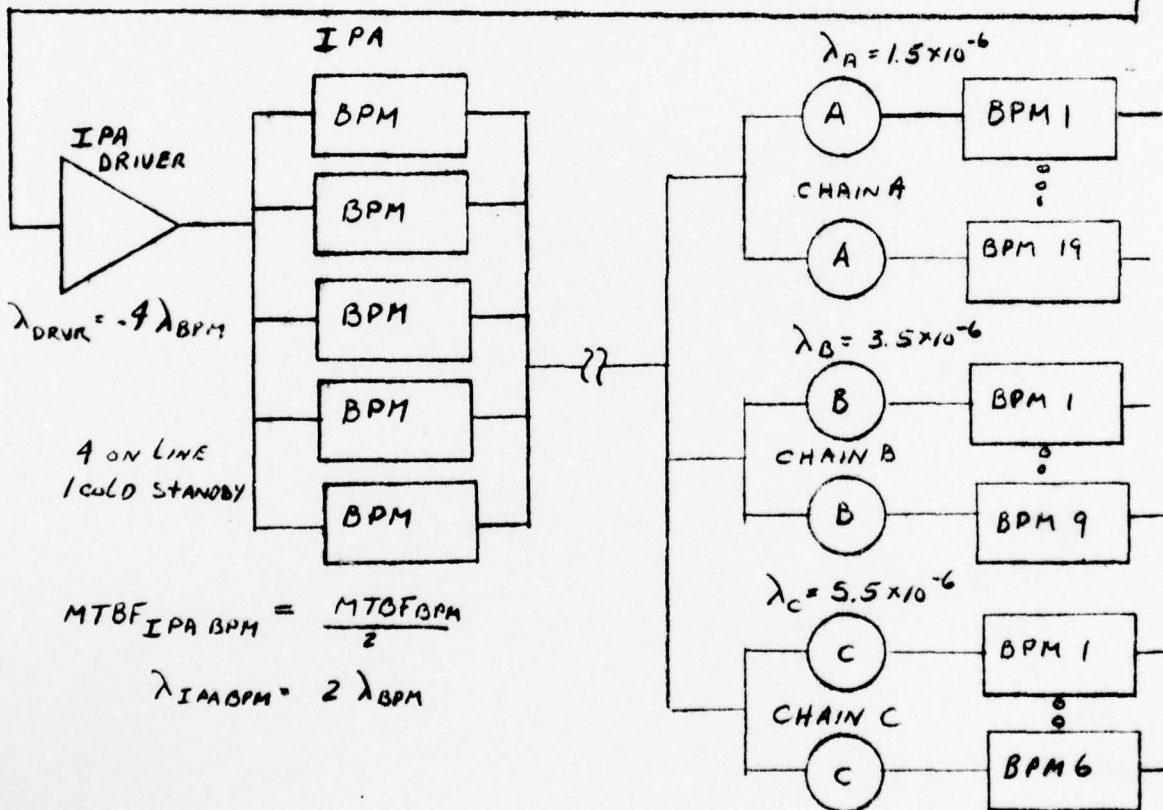 IPA
IPA
DRIVER
λDRVR = .4 λBPM
BPM
BPM
BPM
BPM
BPM
4 ON LINE
1 COLD STANDBY
MTBF IPA BPM = MTBF BPM / 2
λ IPA BPM = 2 λ BPM
λA = 1.5×10⁻⁶
A
BPM 1
CHAIN A
A
BPM 19
λB = 3.5×10⁻⁶
B
BPM 1
CHAIN B
B
BPM 9
λC = 5.5×10⁻⁶
C
BPM 1
CHAIN C
C
BPM 6